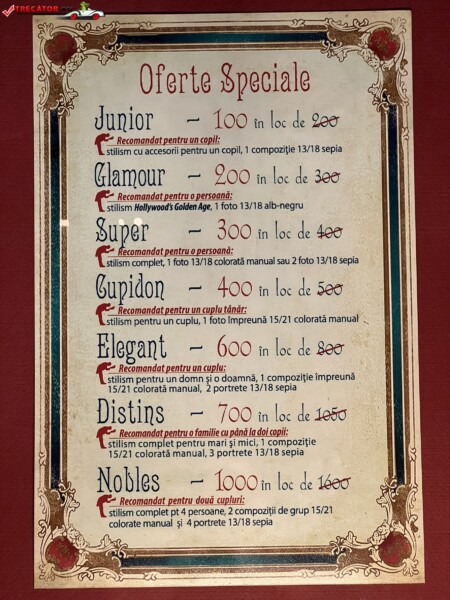 TRECATOR
Oferte Speciale
Junior - 100 în loc de 200
Recomandat pentru un copil:
stilism cu accesorii pentru un copil, 1 compoziție 13/18 sepia
Glamour - 200 în loc de 300
Recomandat pentru o persoană:
stilism Hollywood's Golden Age, 1 foto 13/18 alb-negru
Super - 300 în loc de 400
Recomandat pentru o persoană:
stilism complet, 1 foto 13/18 colorată manual sau 2 foto 13/18 sepia
Cupidon - 400 în loc de 500
Recomandat pentru un cuplu tânăr:
stilism pentru un cuplu, 1 foto împreună 15/21 colorată manual
Elegant - 600 în loc de 800
Recomandat pentru un cuplu:
stilism pentru un domn și o doamnă, 1 compoziție împreună
15/21 colorată manual, 2 portrete 13/18 sepia
Distins - 700 în loc de 1050
Recomandat pentru o familie cu până la doi copii:
stilism complet pentru mari și mici, 1 compoziție
15/21 colorată manual, 3 portrete 13/18 sepia
Nobles - 1000 în loc de 1600
Recomandat pentru două cupluri:
stilism complet pt 4 persoane, 2 compoziții de grup 15/21
colorate manual și 4 portrete 13/18 sepia